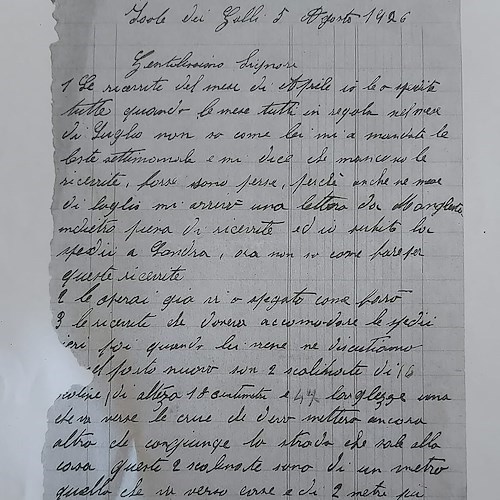 Isole dei Galli 5 Agosto 1926
Gentilissimo Signore
1 Le ricevute del mese di Aprile io le o spedite
tutte quando le mese tutti in regola nel mese
di Luglio non so come lei mi a mandate le
liste settimanale e mi dice che mancano le
ricevute, forse sono perse, perchè anche ne mese
di luglio mi arrivò una lettera da
indietro piena di ricevute ed io subito la
spedii a Londra, ora non so come fare per
queste ricevute
2 le operai gia vi o spegato come
3 le ricevute che doveva accomodare le spedii
ieri poi quando lei viene ne discutiamo
el porto nuovo son 2 scalinate di 16
di alteza 18 centimetri e 47 larghezze una
che va verse le cruce di devo mettero ancora
altro che congiunge la strada che sale alla
casa queste 2 scalinate sono di un metro
quello che va verso e di 2 metri più